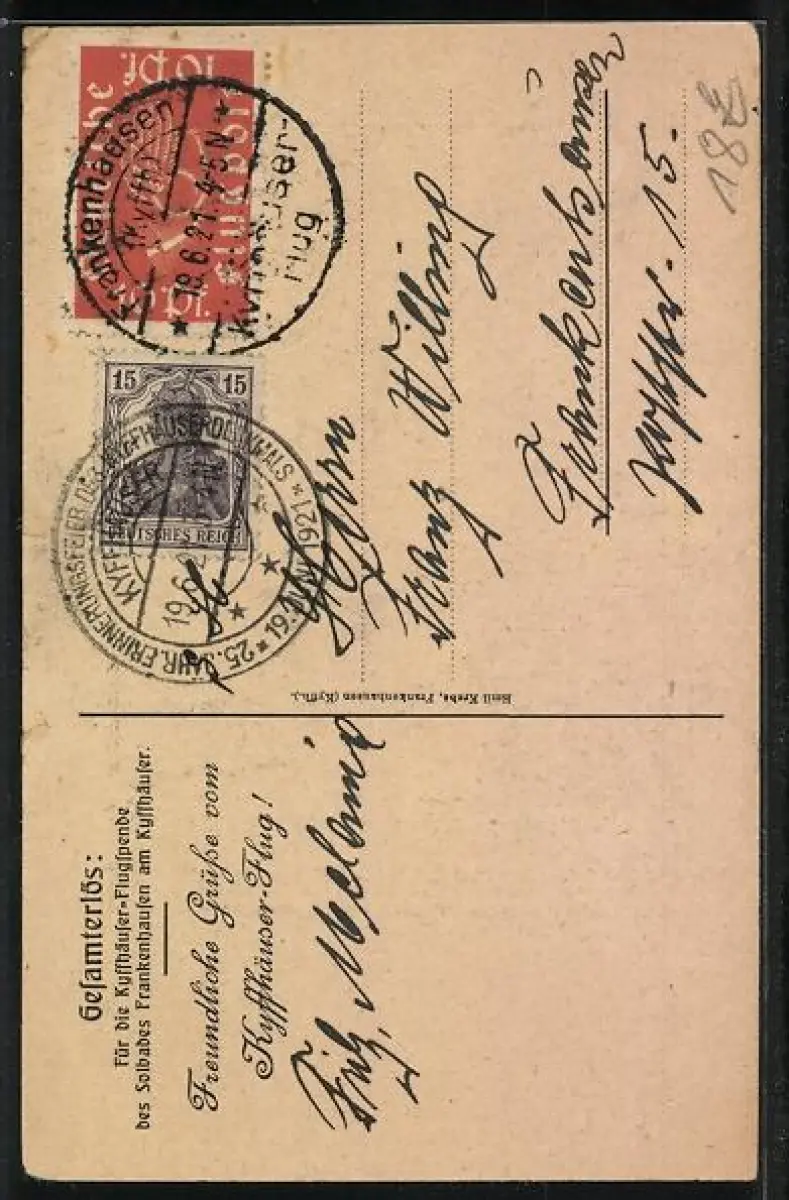 Gesamterlös:
Für die Kyffhäuser-Flugspende
des Solbades Frankenhausen am Kyffhäuser.
Freundliche Grüße vom
Kyffhäuser-Flug!
Fritz, Melanie
Emil Krebs, Frankenhausen (Kyffh.).
10 Pf.
Frankenhausen
(Kyffh)
19.6.21. 4-5 N
Kyffhäuser-
Flug
15 15
DEUTSCHES REICH
25. JAHR. ERINNERUNGSFEIER DES KYFFHÄUSERDENKMALS
19. JUNI 1921
KYFFHÄUSER
19.6.2
Herrn
Franz Willing
Frankenhausen
15.
18